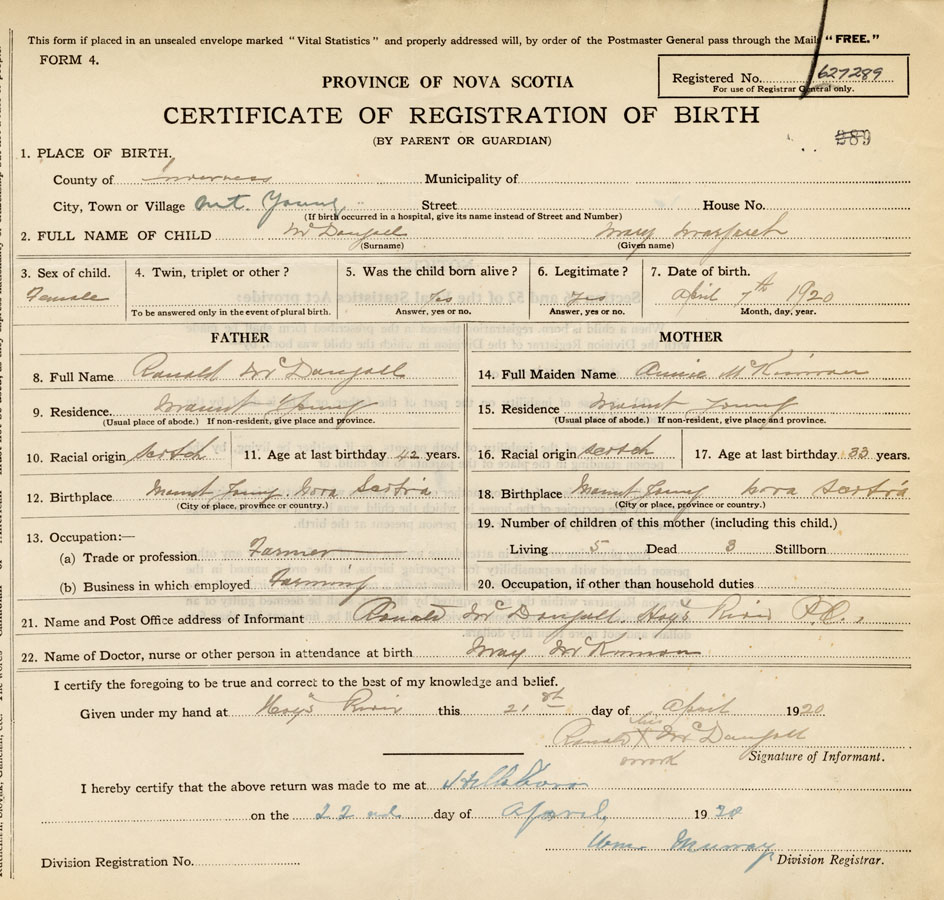 This form if placed in an unsealed envelope marked "Vital Statistics" and properly addressed will, by order of the Postmaster General pass through the Mails "FREE."
FORM 4.
PROVINCE OF NOVA SCOTIA
Registered No. 627289
For use of Registrar General only.
CERTIFICATE OF REGISTRATION OF BIRTH
(BY PARENT OR GUARDIAN)
1. PLACE OF BIRTH.
County of Inverness Municipality of
City, Town or Village Mt. Young Street House No.
(If birth occurred in a hospital, give its name instead of Street and Number)
2. FULL NAME OF CHILD McDougall Mary Margaret
(Surname) (Given name)
3. Sex of child. 4. Twin, triplet or other? 5. Was the child born alive? 6. Legitimate? 7. Date of birth.
Female Yes Yes April 7th 1920
To be answered only in the event of plural birth. Answer, yes or no. Answer, yes or no. Month, day, year.
FATHER MOTHER
8. Full Name Ronald McDougall 14. Full Maiden Name Annie McKinnon
9. Residence. Mount Young 15. Residence Mount Young
(Usual place of abode.) If non-resident, give place and province. (Usual place of abode.) If non-resident, give place and province.
10. Racial origin Scotch 11. Age at last birthday 42 years. 16. Racial origin Scotch 17. Age at last birthday 33 years.
12. Birthplace Mount Young Nova Scotia 18. Birthplace Mount Young Nova Scotia
(City or place, province or country.) (City or place, province or country.)
19. Number of children of this mother (including this child.)
13. Occupation:—
(a) Trade or profession Farmer Living 5 Dead 3 Stillborn
(b) Business in which employed Farming 20. Occupation, if other than household duties
21. Name and Post Office address of Informant Ronald McDougall, Hay's River P.O.
22. Name of Doctor, nurse or other person in attendance at birth May McKinnon
I certify the foregoing to be true and correct to the best of my knowledge and belief.
Given under my hand at Hay's River this 21st day of April 1920
his
Ronald X McDougall
mark Signature of Informant.
I hereby certify that the above return was made to me at Hillsboro
on the 22nd day of April 1920
Wm. Murray
Division Registration No. Division Registrar.